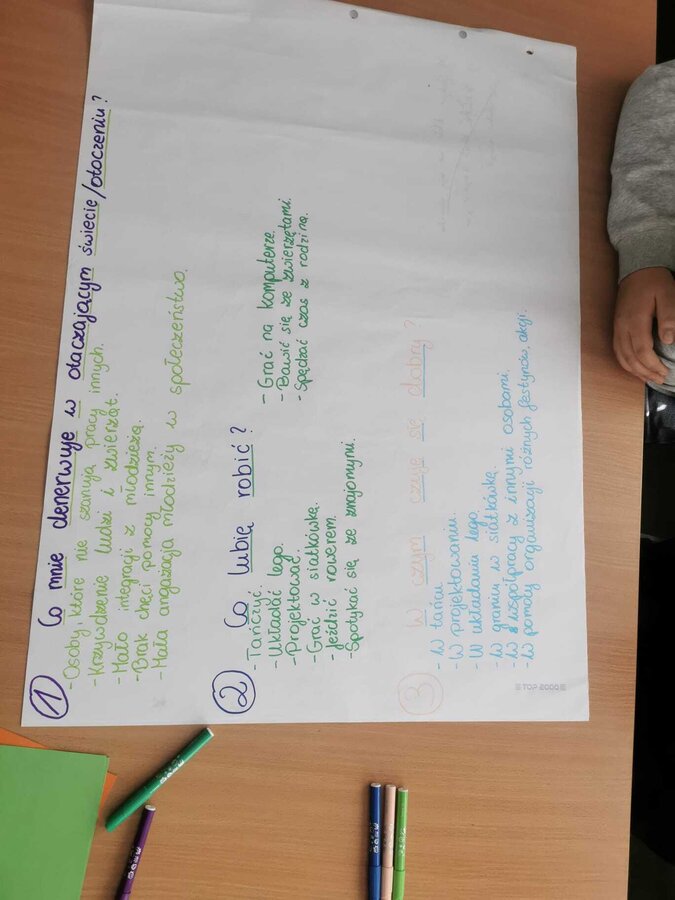 1 Co mnie denerwuje w otaczającym świecie/otoczeniu?
- Osoby, które nie szanują pracy innych.
- Krzywdzenie ludzi i zwierząt.
- Mało integracji z młodzieżą.
- Brak chęci pomocy innym.
- Mała angażacja młodzieży w społeczeństwo.
2 Co lubię robić?
- Tańczyć.
- Układać lego.
- Projektować.
- Grać w siatkówkę.
- Jeździć rowerem.
- Spotykać się ze znajomymi.
- Grać na komputerze.
- Bawić się ze zwierzętami.
- Spędzać czas z rodziną.
3 W czym czuję się dobry?
- W tańcu
- W projektowaniu.
- W układaniu lego.
- W graniu w siatkówkę.
- W współpracy z innymi osobami.
- W pomocy organizacji różnych festynów, akcji.
TOP 2000